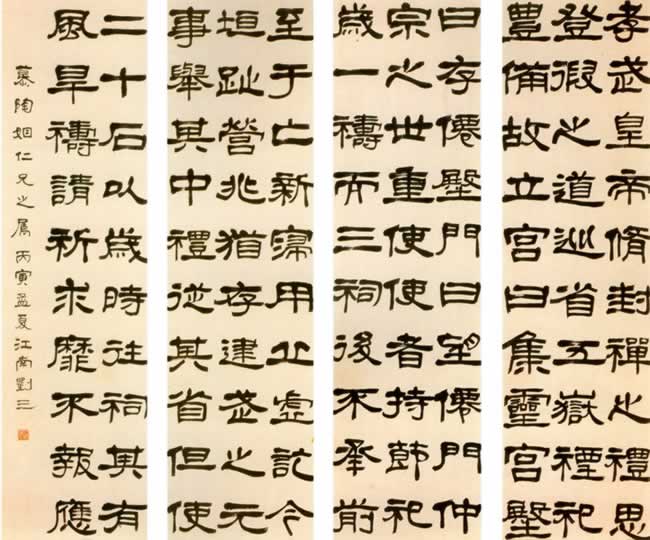 孝武皇帝脩封禪之禮思
登假之道巡省五嶽禋祀
豊備故立宮曰集靈宮壂
曰存僊壂門曰望僊門仲
宗之世重使使者持節祀
歲一禱而三祠後不承前
至于亡新寖用丘虛訖今
垣趾營兆猶存建武之元
事舉其中禮從其省但使
二十石以歲時往祠其有
風旱禱請祈求靡不報應
慕陶姻仁兄之属 丙寅孟夏江南劉三